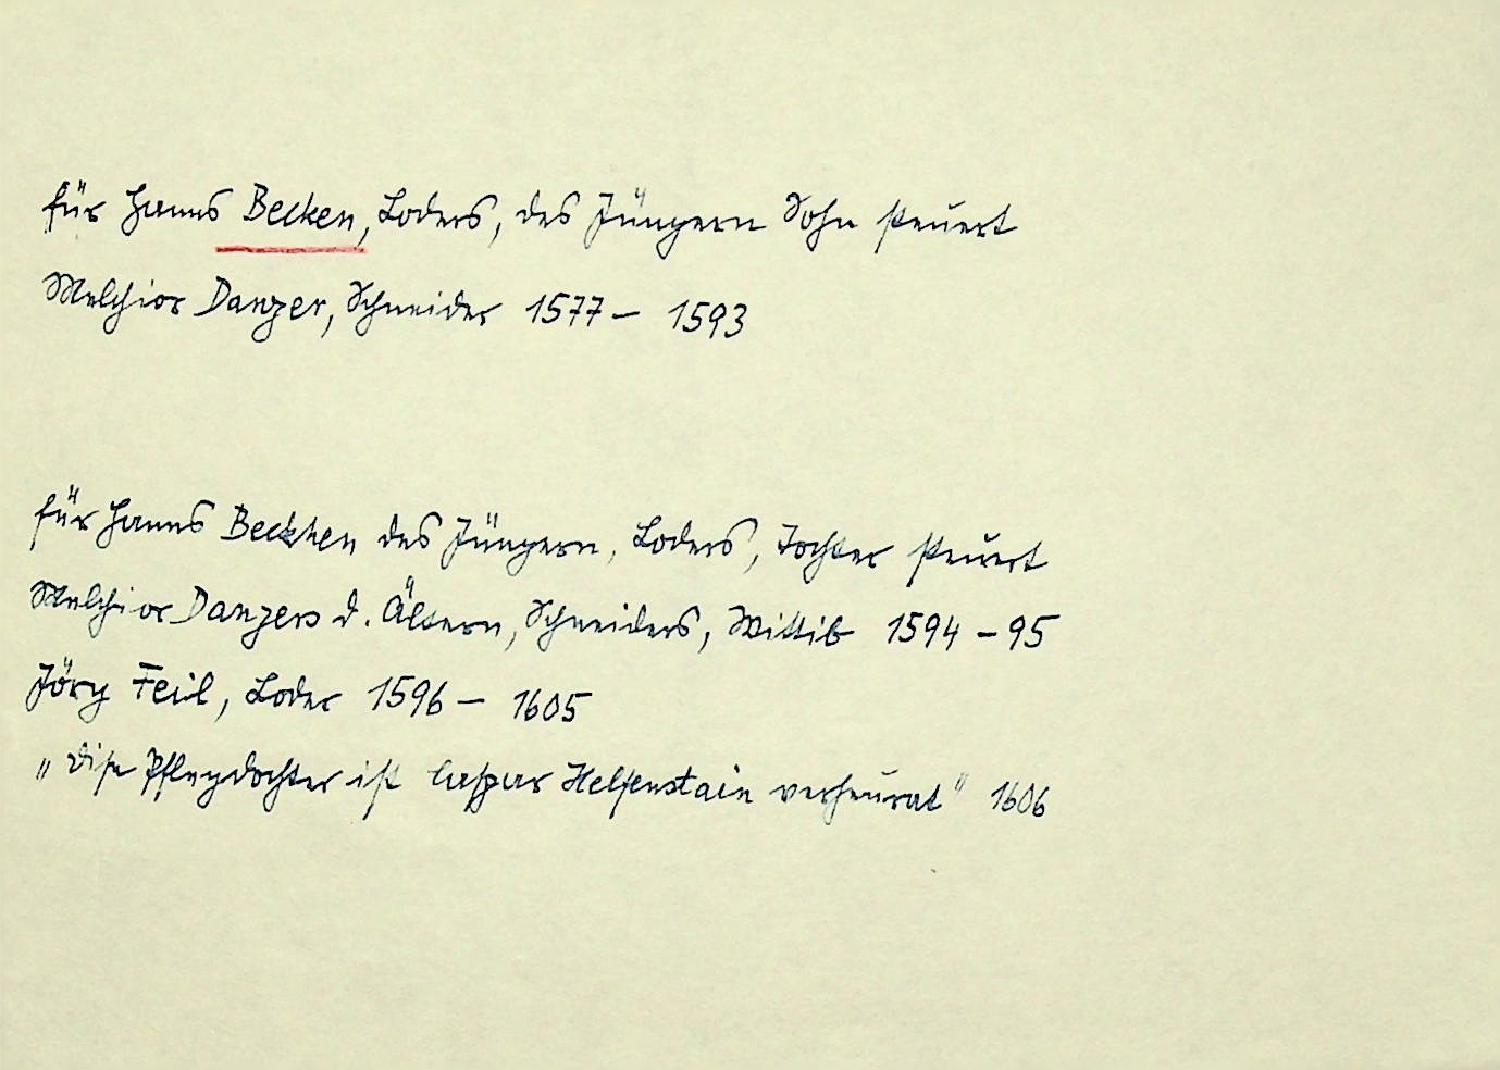 für Hanns Becken, Loders, des Jüngern Sohn steuert
Melchior Danzer, Schneider 1577 – 1593
für Hanns Beckhen des Jüngern, Loders, Tochter steuert
Melchior Danzers d. Ältern, Schneiders, Wittib 1594 – 95
Jörg Feil, Loder 1596 – 1605
„Dise Pflegdochter ist Caspar Helfenstain verheurat" 1606